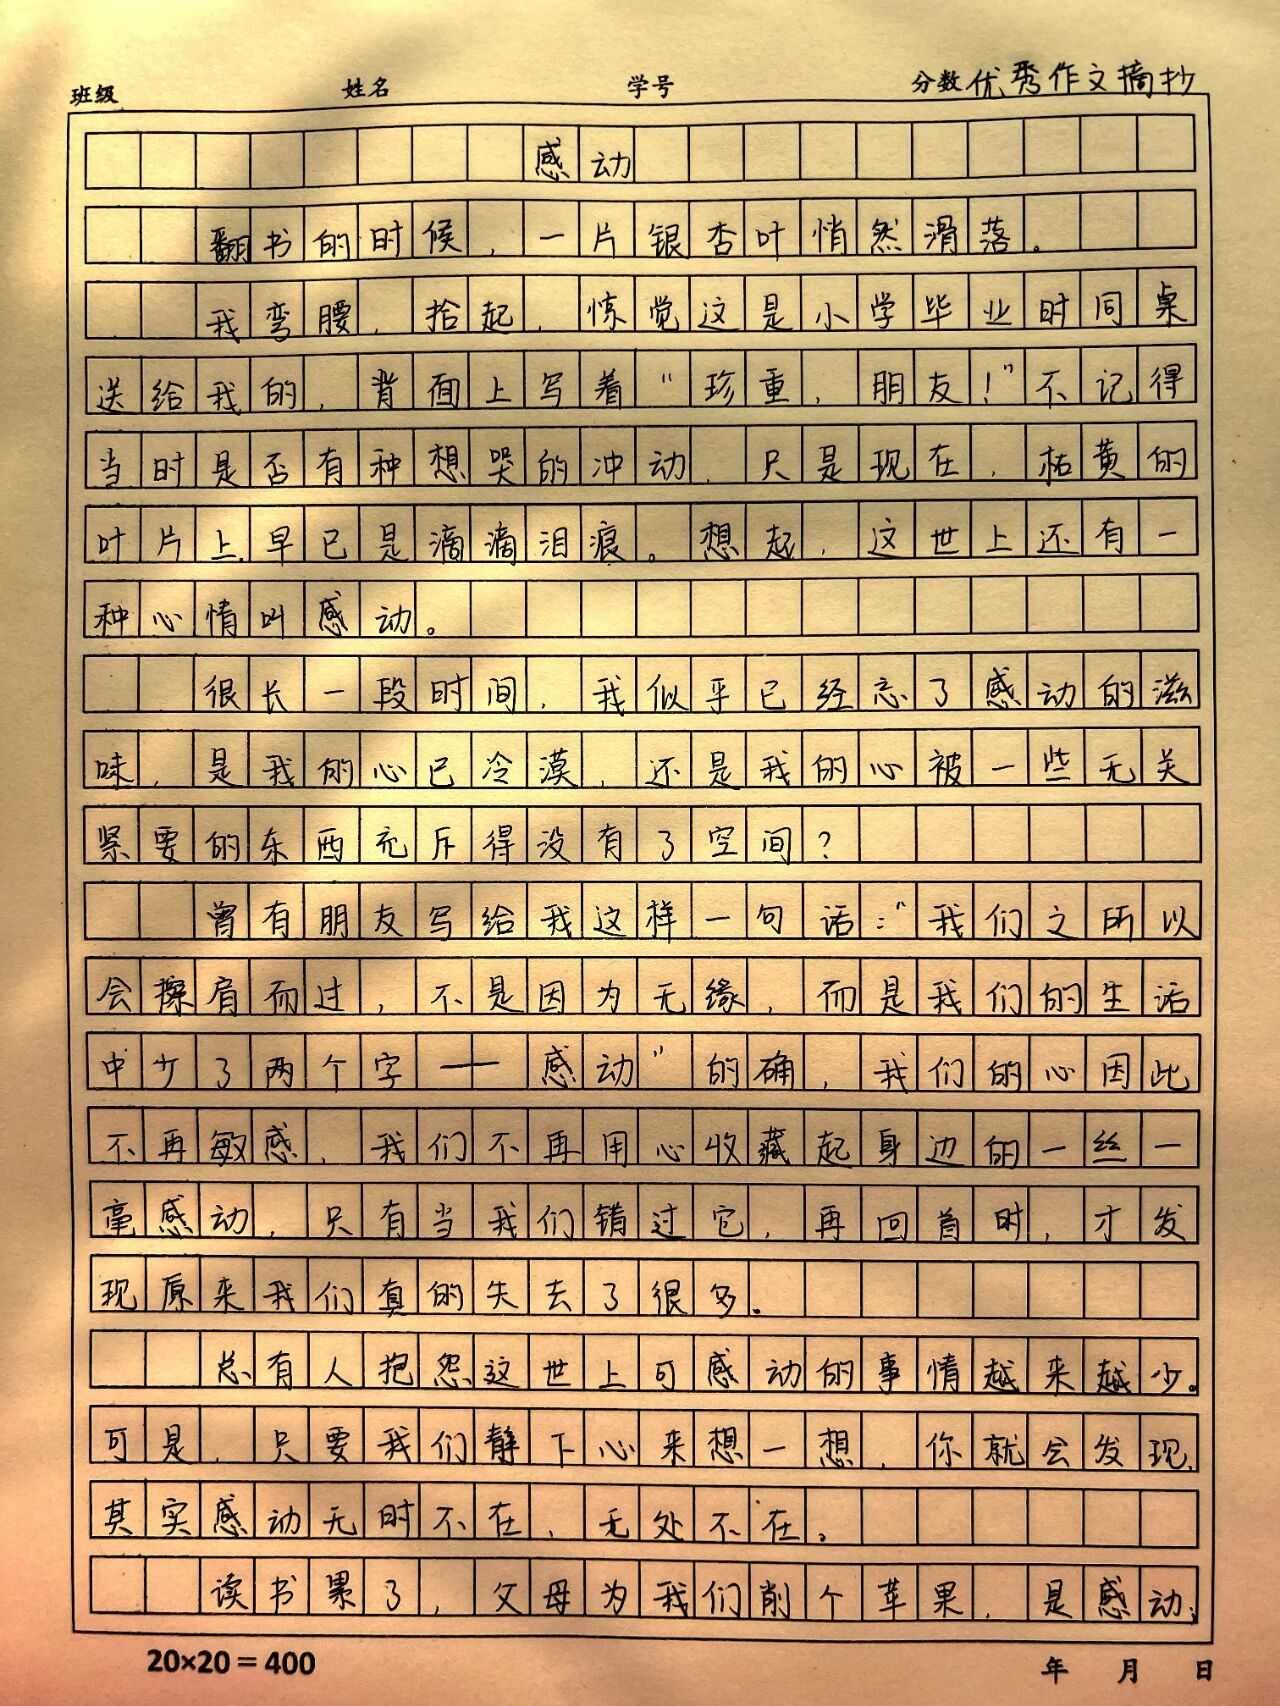 班级 姓名 学号 分数 优秀作文摘抄
感动
翻书的时候，一片银杏叶悄然滑落。
我弯腰，拾起，惊觉这是小学毕业时同桌
送给我的，背面上写着“珍重，朋友！”不记得
当时是否有种想哭的冲动，只是现在，枯黄的
叶片上早已是滴滴泪痕。想起，这世上还有一
种心情叫感动。
很长一段时间，我似乎已经忘了感动的滋
味，是我的心已冷漠，还是我的心被一些无关
紧要的东西充斥得没有了空间？
曾有朋友写给我这样一句话：“我们之所以
会擦肩而过，不是因为无缘，而是我们的生活
中少了两个字——感动”的确，我们的心因此
不再敏感，我们不再用心收藏起身边的一丝一
毫感动，只有当我们错过它，再回首时，才发
现原来我们真的失去了很多。
总有人抱怨这世上可感动的事情越来越少。
可是，只要我们静下心来想一想，你就会发现，
其实感动无时不在，无处不在。
读书累了，父母为我们削个苹果，是感动；
20×20＝400 年 月 日